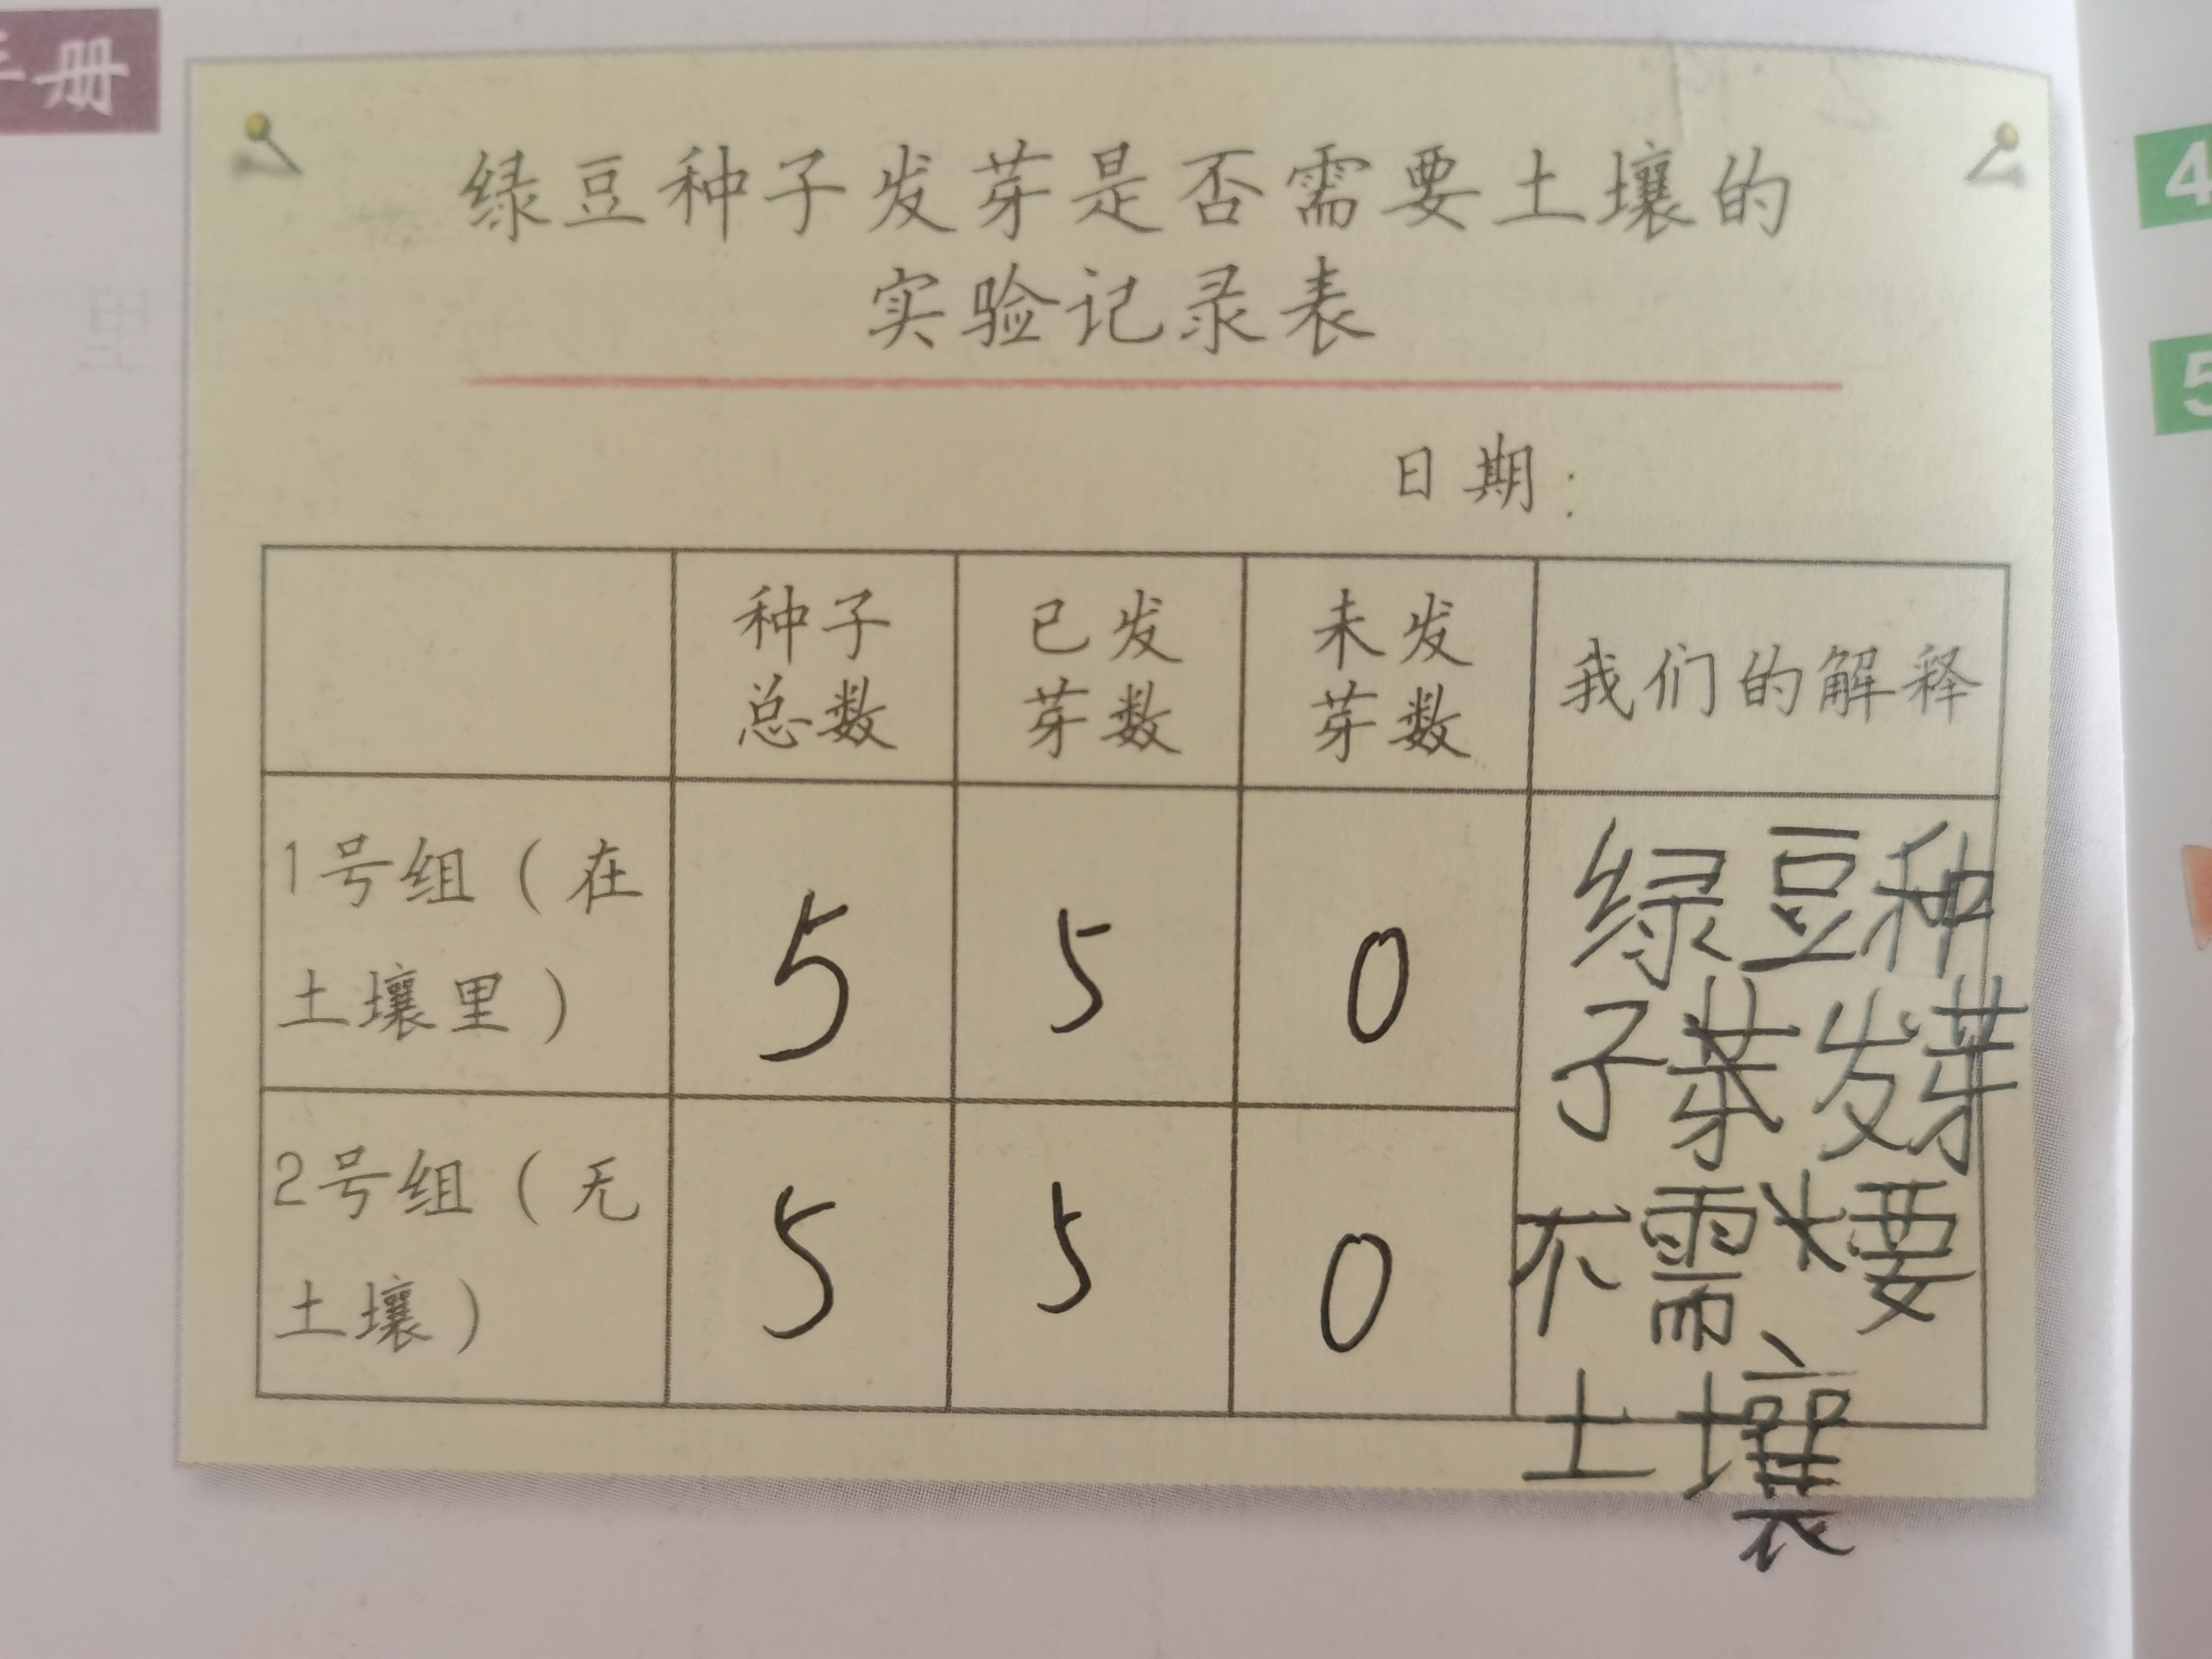 册
绿豆种子发芽是否需要土壤的
实验记录表
日期：
种子总数 已发芽数 未发芽数 我们的解释
1号组（在土壤里） 5 5 0
2号组（无土壤） 5 5 0
绿豆种
子芽发芽
不需要
土壤
4
5